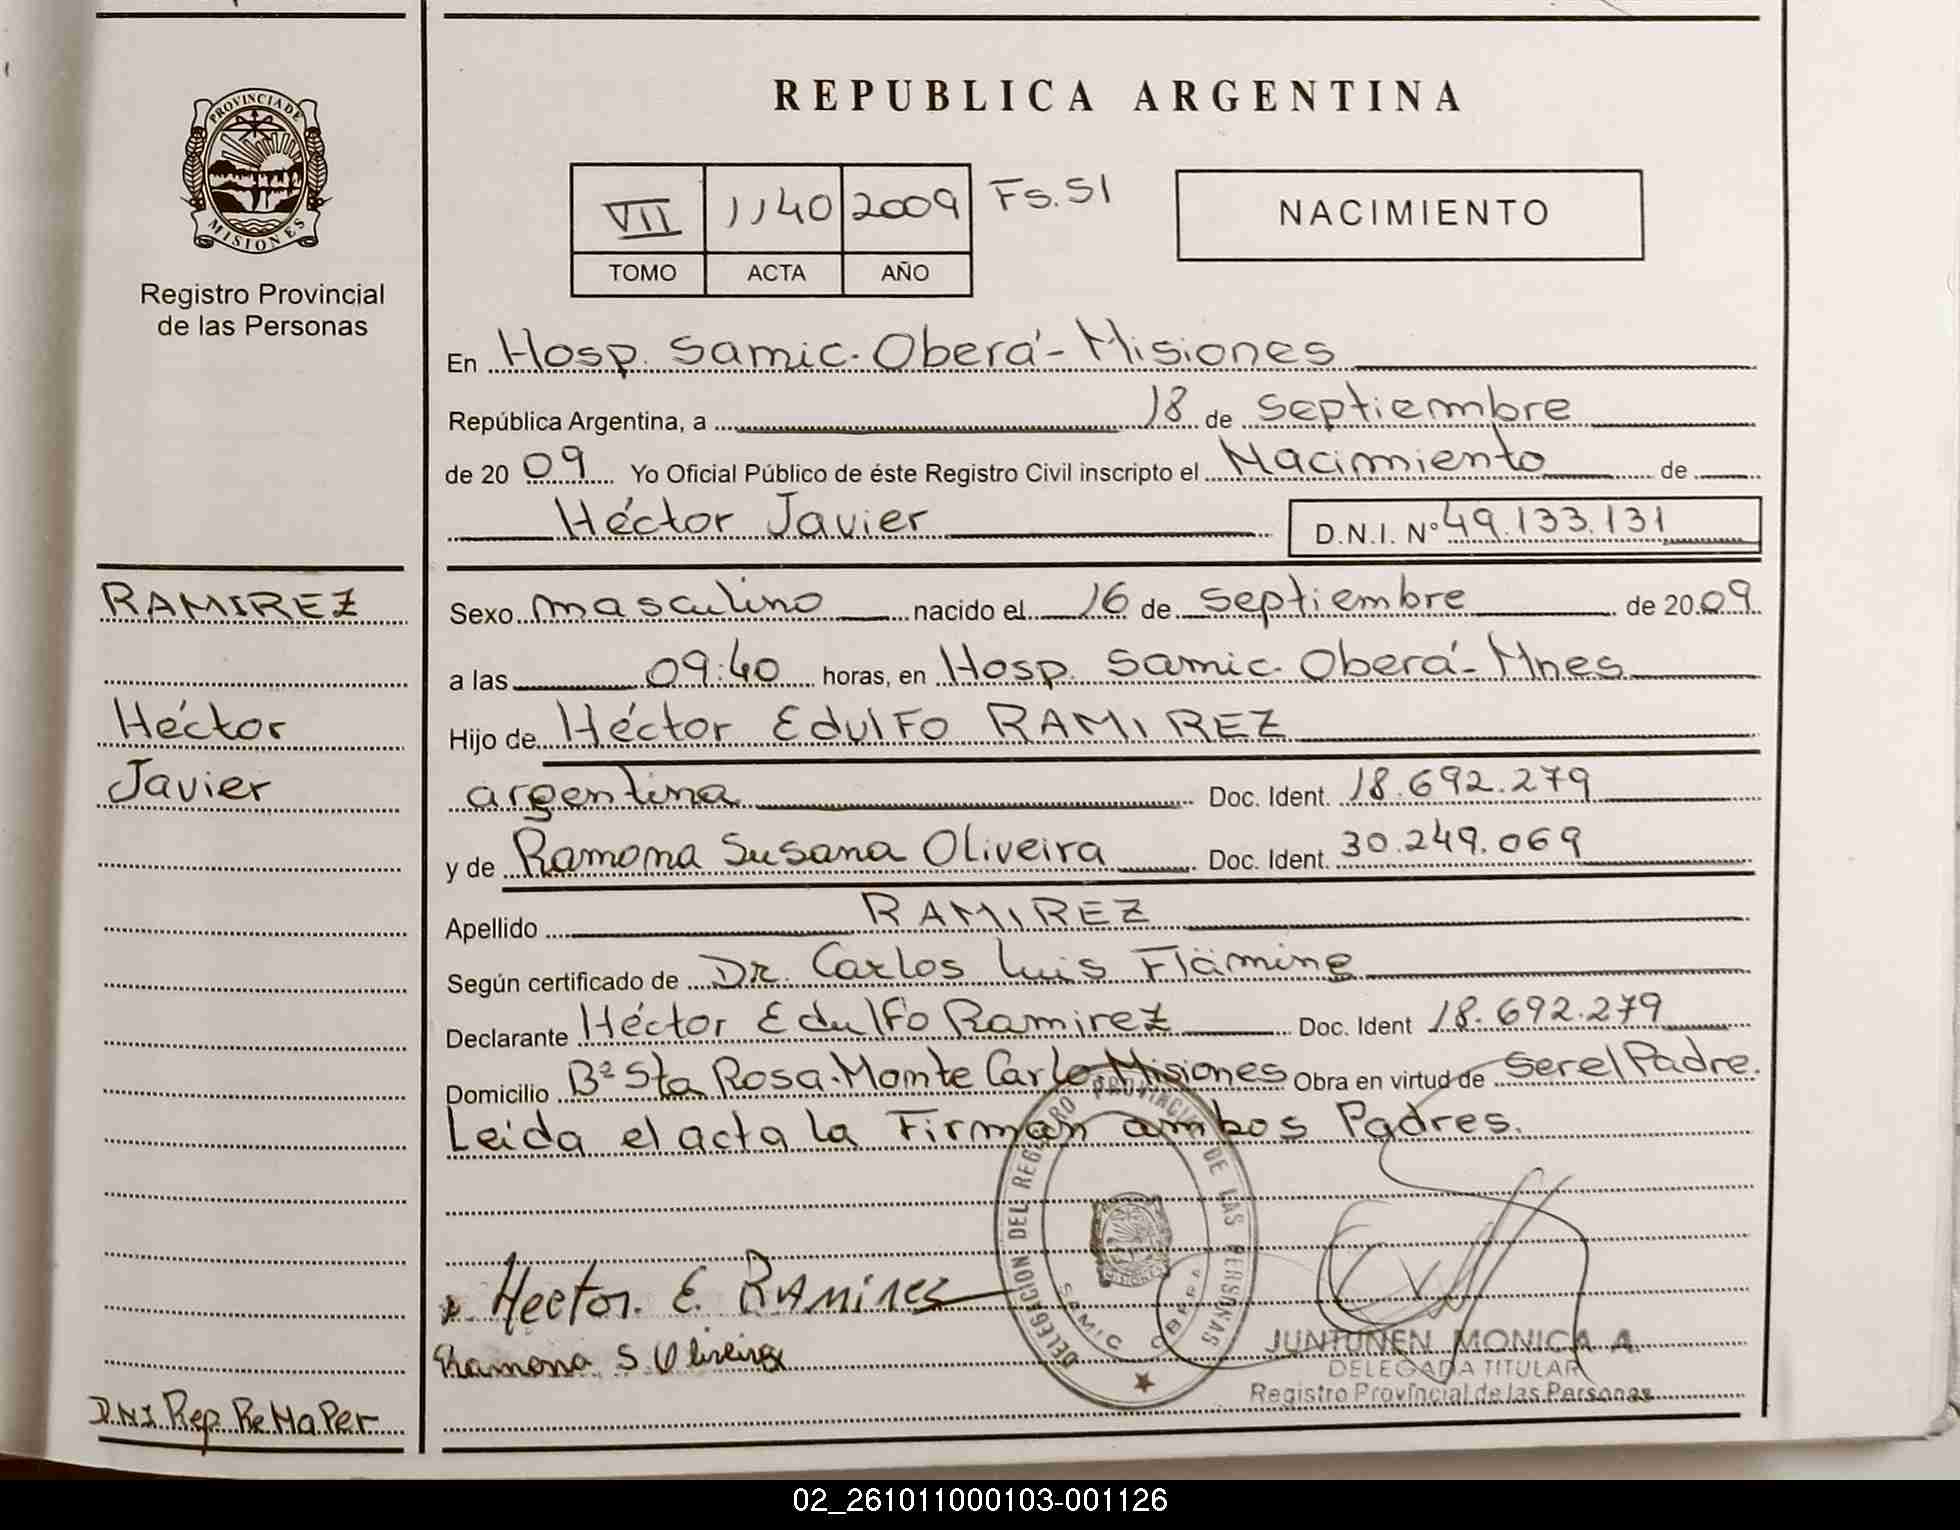 PROVINCIA DE
MISIONES
Registro Provincial
de las Personas
RAMIREZ
Héctor
Javier
D.N.I. Rep. ReNaPer
REPUBLICA ARGENTINA
VII 1140 2009 Fs. 51
TOMO ACTA AÑO
NACIMIENTO
En Hosp. Samic. Oberá - Misiones
República Argentina, a 18 de Septiembre
de 2009 Yo Oficial Público de éste Registro Civil inscripto el Nacimiento de
Héctor Javier D.N.I. Nº 49.133.131
Sexo masculino nacido el 16 de Septiembre de 2009
a las 09:40 horas, en Hosp. Samic. Oberá - Mnes
Hijo de Héctor Edulfo RAMIREZ
argentina Doc. Ident. 18.692.279
y de Ramona Susana Oliveira Doc. Ident. 30.249.069
Apellido RAMIREZ
Según certificado de Dr. Carlos Luis Fläming
Declarante Héctor Edulfo Ramirez Doc. Ident 18.692.279
Domicilio Bº Sta Rosa. Monte Carlo Misiones Obra en virtud de Ser el Padre.
Leida el acta la Firman ambos Padres.
DELEGACION DEL REGISTRO PROVINCIAL DE LAS PERSONAS
SAMIC OBERA
Hector. E. RAMIREZ
Ramona S Oliveira
JUNTUNEN MONICA A.
DELEGADA TITULAR
Registro Provincial de las Personas
02_261011000103-001126